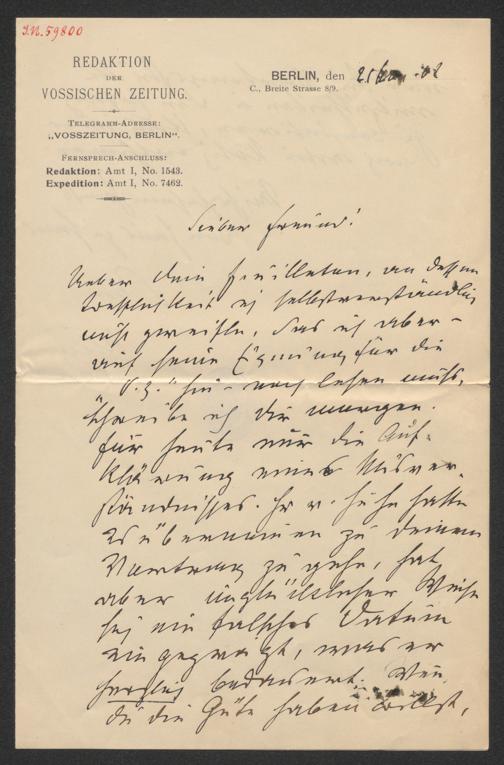 I.N. 59800
REDAKTION
DER
VOSSISCHEN ZEITUNG.
TELEGRAMM-ADRESSE:
„VOSSZEITUNG, BERLIN“.
FERNSPRECH-ANSCHLUSS:
Redaktion: Amt I, No. 1543.
Expedition: Amt I, No. 7462.
BERLIN, den
C., Breite Strasse 8/9.
Lieber Freund!
Ueber dein Feuilleton, an dessen
Trefflichkeit ich selbstverständlich
nicht zweifle, das ich aber –
auf seine Eignung für die
"V.Z." hin – noch lesen muß,
schreibe ich dir morgen.
Für heute nur die Auf-
klärung eines Misver-
ständnisses. Hr v. hatte
es übernommen zu deinem
Vortrag zu gehn, hat
aber unglücklicher Weise
sich ein falsches Datum
eingeprägt, was er
herzlich bedauert. Wenn
du die Güte haben willst,